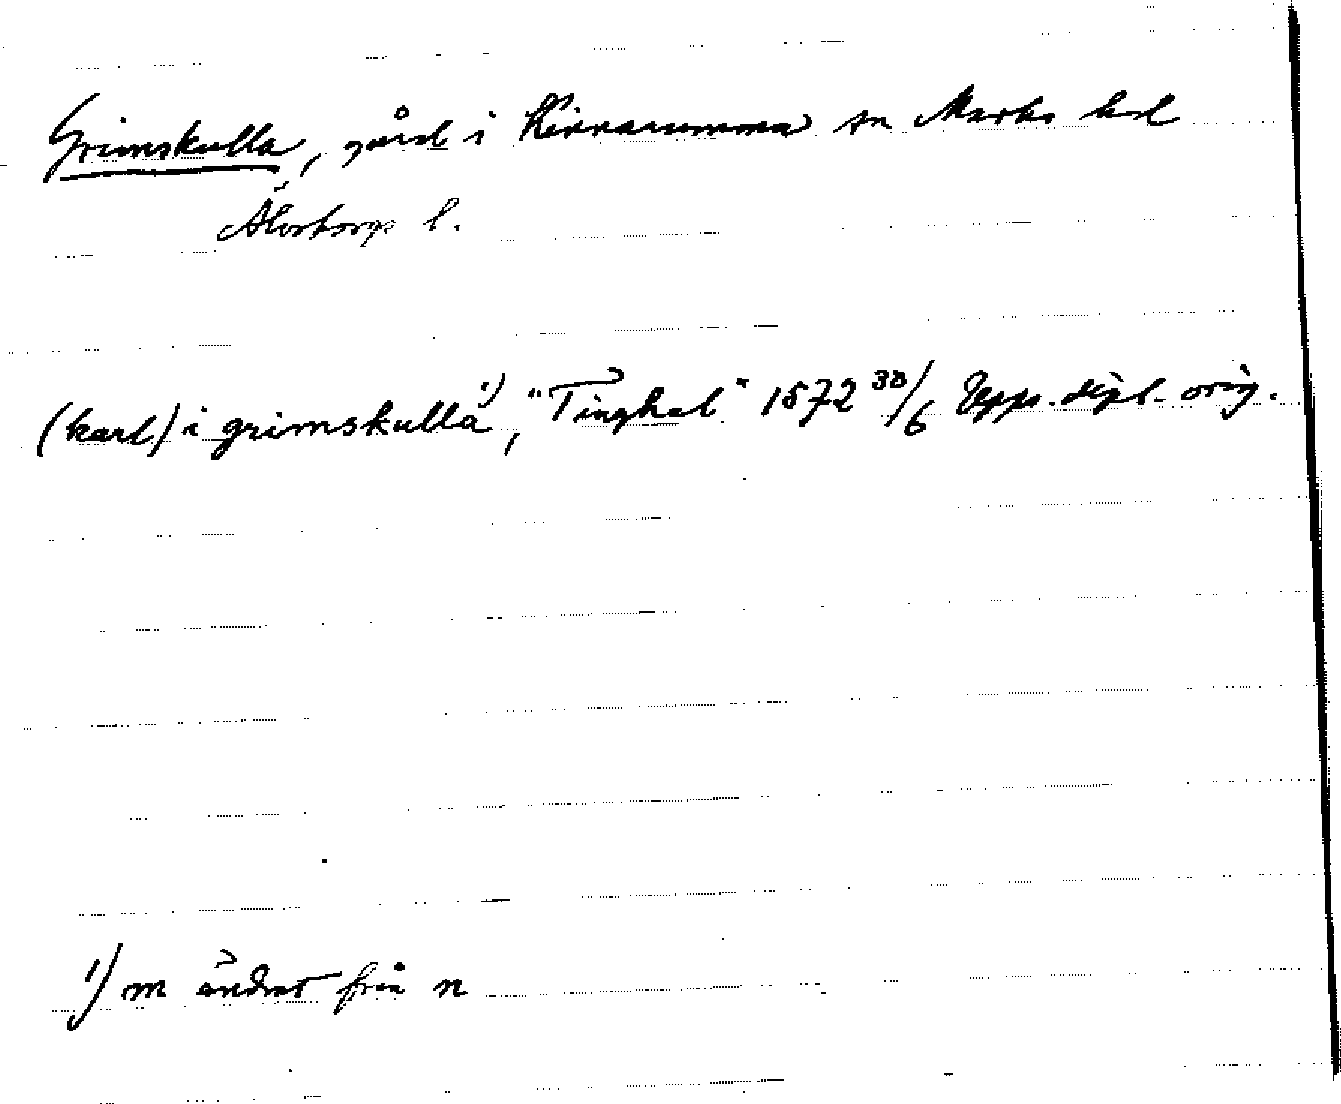 Grimskulla, gård i Kinnarumma sn Marks hd
Älvsborgs l.
(karl) i grimskulla 1), "Tinghel" 1572 30/6 Papp. dipl. orig.
1) m ändrat från n